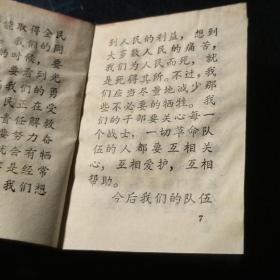 能取得全民
我们的同
的时候，要
要看到光
我们的勇
民正在受
责任解放
要努力奋
就会有牺
是经常
我们想
到人民的利益，想到
大多数人民的痛苦，
我们为人民而死，就
是死得其所。不过，我
们应当尽量地减少那
些不必要的牺牲。我
们的干部要关心每一
个战士，一切革命队
伍的人都要互相关
心，互相爱护，互相
帮助。
今后我们的队伍
7